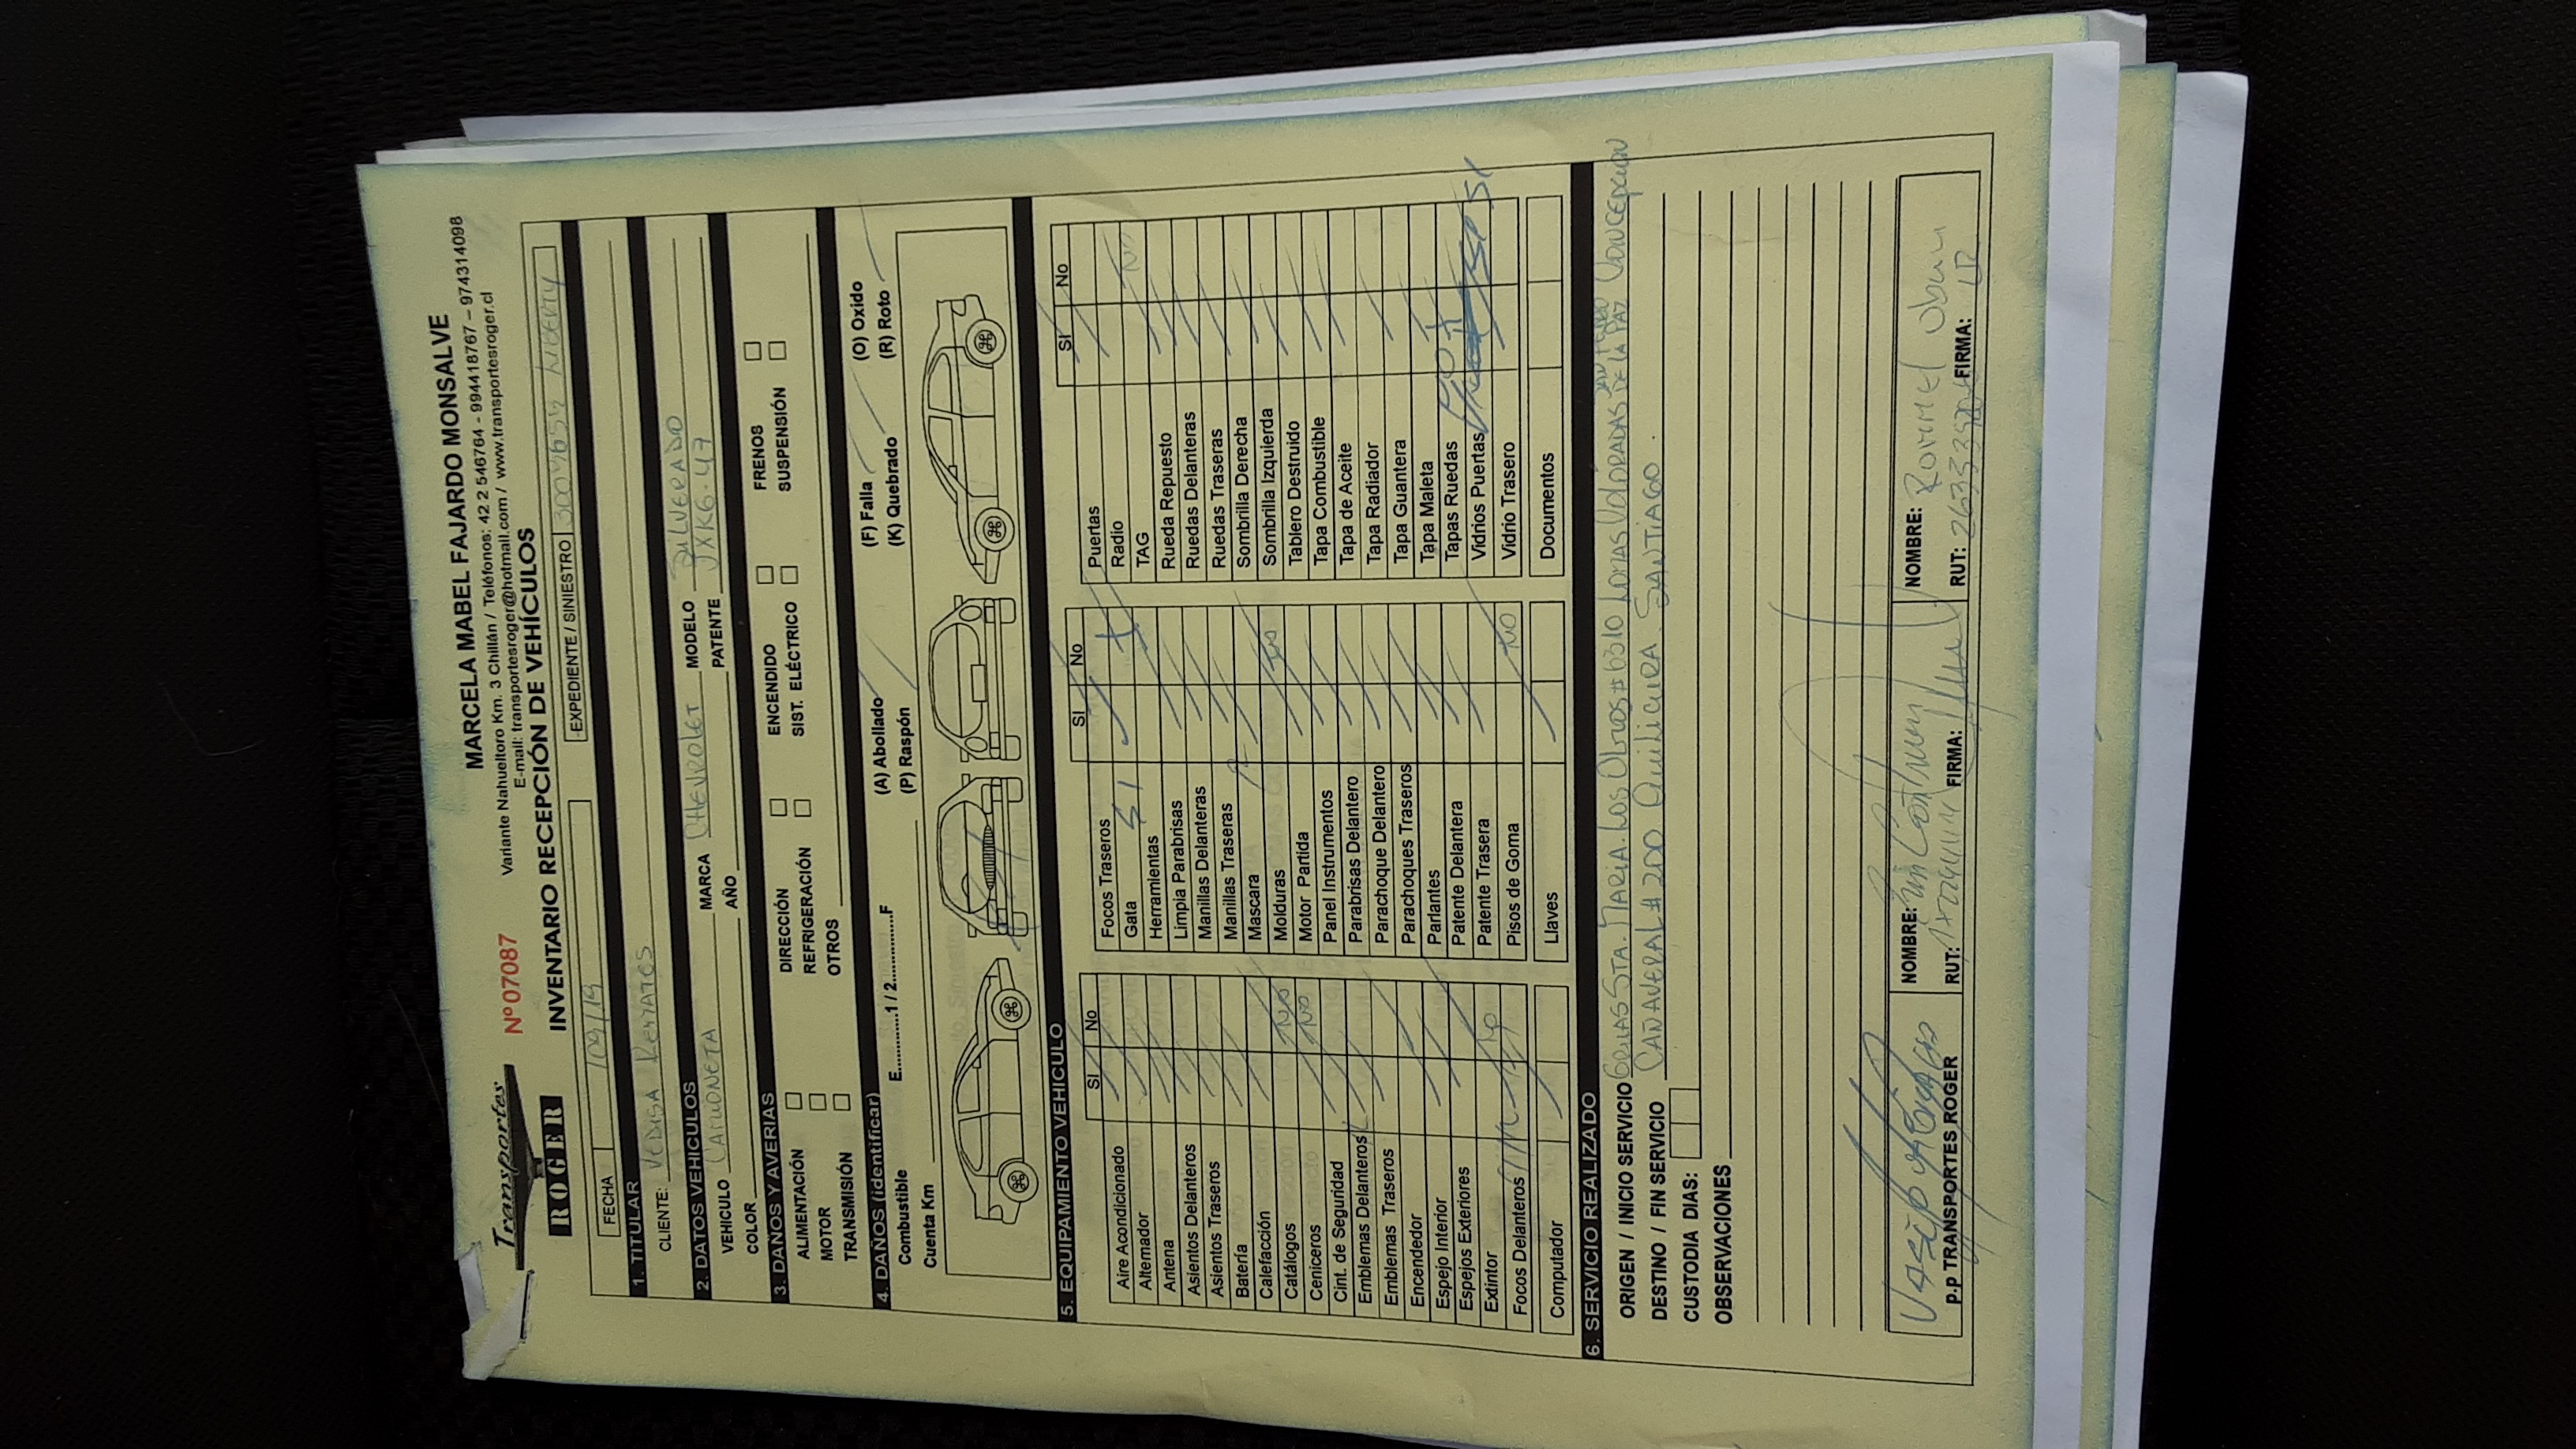 Transportes
ROGER
Nº 07087
MARCELA MABEL FAJARDO MONSALVE
Variante Nahueltoro Km. 3 Chillán / Teléfonos: 42 2 546764 - 994418767 – 974314098
E-mail: transportesroger@hotmail.com / www.transportesroger.cl
INVENTARIO RECEPCIÓN DE VEHÍCULOS
FECHA
EXPEDIENTE / SINIESTRO
1. TITULAR
CLIENTE: VEDISA Remates
2. DATOS VEHICULOS
VEHICULO CAMIONETA MARCA CHEVROLET MODELO SILVERADO
COLOR AÑO PATENTE JXKG.47
3. DAÑOS Y AVERIAS
ALIMENTACIÓN DIRECCIÓN ENCENDIDO FRENOS
MOTOR REFRIGERACIÓN SIST. ELÉCTRICO SUSPENSIÓN
TRANSMISIÓN OTROS
4. DAÑOS (identificar)
Combustible E............1 / 2..............F (A) Abollado (F) Falla (O) Oxido
Cuenta Km (P) Raspón (K) Quebrado (R) Roto
5. EQUIPAMIENTO VEHICULO
SI No
Aire Acondicionado
Alternador
Antena
Asientos Delanteros
Asientos Traseros
Batería
Calefacción
Catálogos No
Ceniceros No
Cint. de Seguridad
Emblemas Delanteros
Emblemas Traseros
Encendedor
Espejo Interior
Espejos Exteriores
Extintor No
Focos Delanteros
Computador
SI No
Focos Traseros
Gata SI
Herramientas
Limpia Parabrisas
Manillas Delanteras
Manillas Traseras
Mascara
Molduras No
Motor Partida
Panel Instrumentos
Parabrisas Delantero
Parachoque Delantero
Parachoques Traseros
Parlantes
Patente Delantera
Patente Trasera
Pisos de Goma No
Llaves
SI No
Puertas
Radio
TAG No
Rueda Repuesto
Ruedas Delanteras
Ruedas Traseras
Sombrilla Derecha
Sombrilla Izquierda
Tablero Destruido
Tapa Combustible
Tapa de Aceite
Tapa Radiador
Tapa Guantera
Tapa Maleta
Tapas Ruedas
Vidrios Puertas
Vidrio Trasero SI
Documentos
6. SERVICIO REALIZADO
ORIGEN / INICIO SERVICIO GRUAS STA. MARIA. LOS OLMOS # 6310 LOMAS COLORADAS SAN PEDRO DE LA PAZ CONCEPCION
DESTINO / FIN SERVICIO CAÑAVERAL # 200 Quilicura. SANTIAGO.
CUSTODIA DIAS:
OBSERVACIONES
P.P TRANSPORTES ROGER
NOMBRE:
RUT: FIRMA:
NOMBRE: Rommel
RUT: FIRMA: